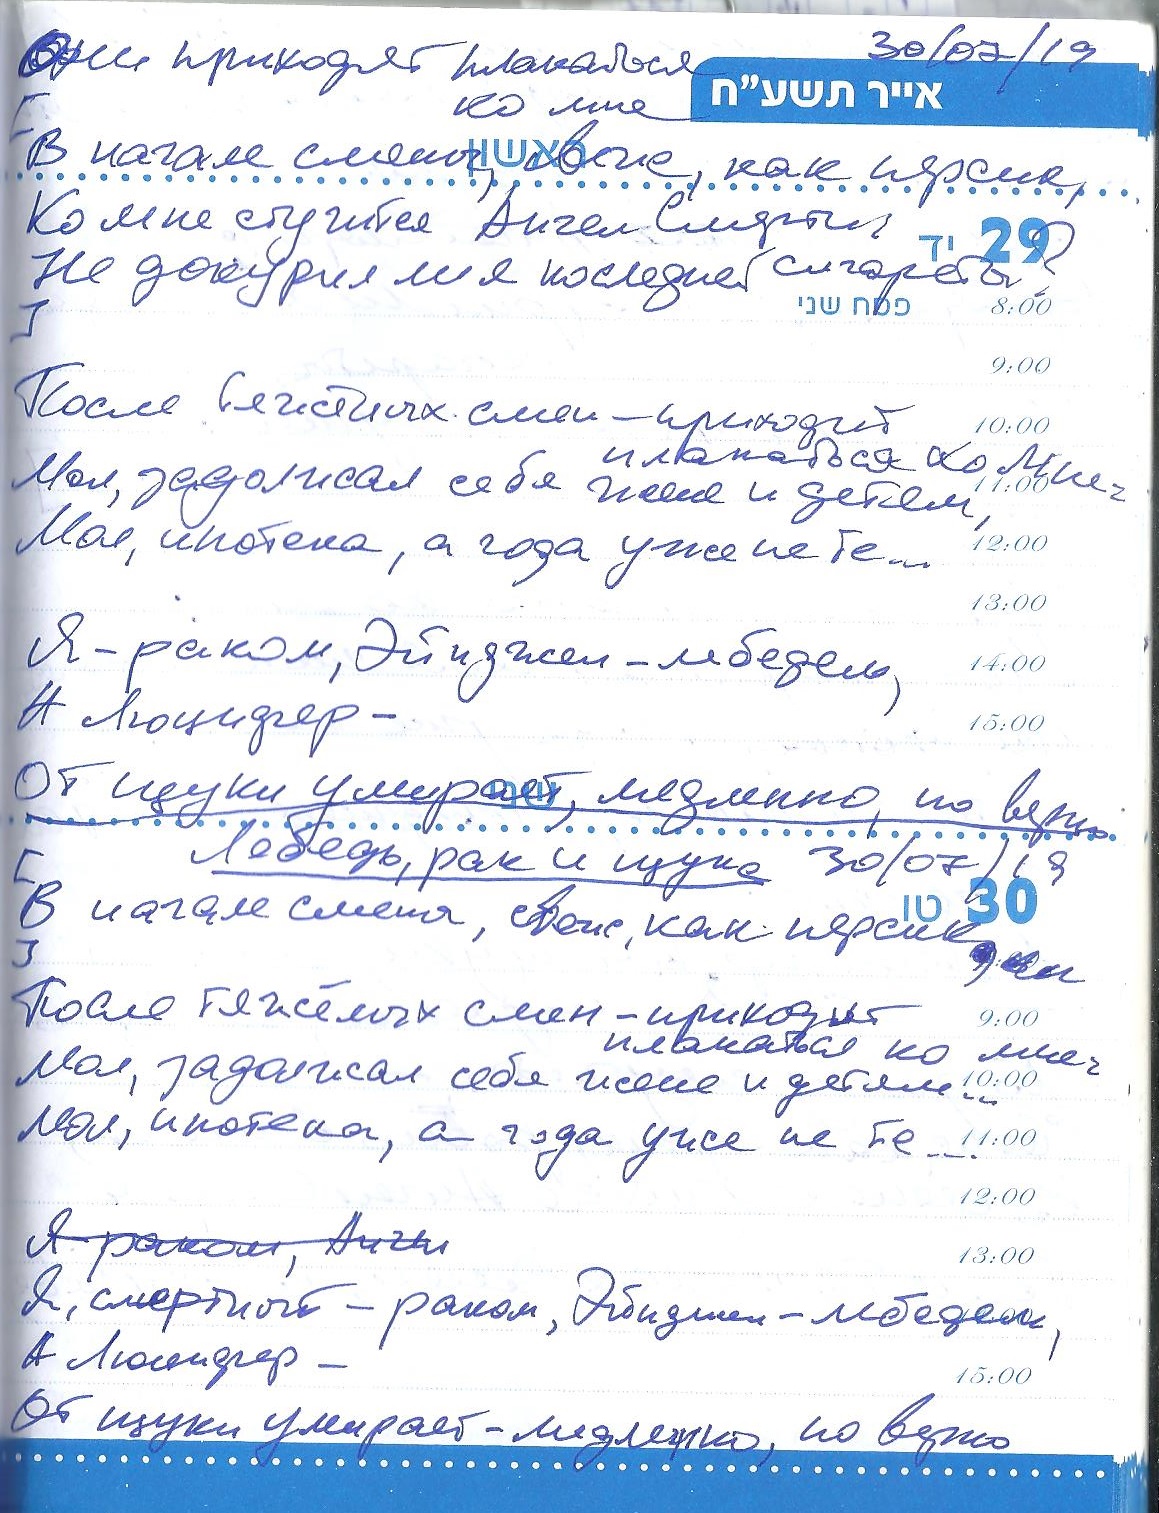 Они приходят плакаться 30/07/19
ко мне
אייר תשע״ח
[
ראשון
В начале смены, свеж, как персик,
Ко мне стучится Ангел Смерти
29 יד
Не докурил ли я последней сигареты?
פסח שני 8:00
]
9:00
После тяжёлых смен – приходит 10:00
плакаться ко мне
Мол, задолжал себя жене и детям, 11:00
Мол, ипотека, а года уже не те... 12:00
13:00
Я – раком, Эйнджел – лебедем, 14:00
А Люцифер – 15:00
שני
От щуки умирает, медленно, но верно
Лебедь, рак и щука 30/07/19
[
30 טו
В начале смены, свеж, как персик,
]
После тяжёлых смен – приходит 9:00
плакаться ко мне
Мол, задолжал себя жене и детям... 10:00
Мол, ипотека, а года уже не те... 11:00
12:00
Я – раком, Ангел 13:00
Я, смертный – раком, Эйнджел – лебедем,
А Люцифер – 15:00
От щуки умирает – медленно, но верно